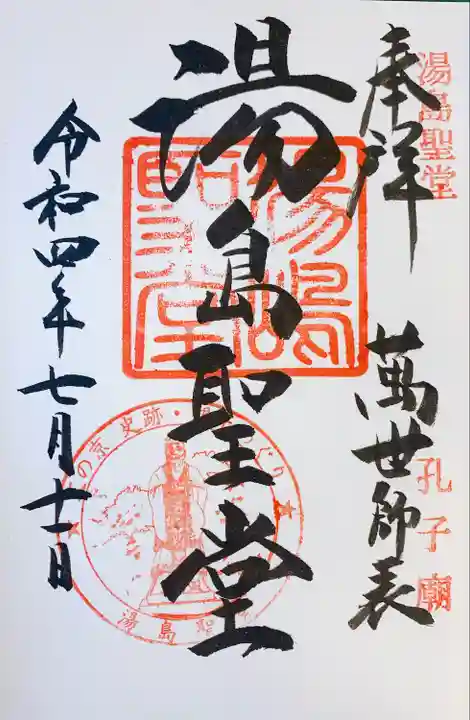 湯島聖堂
孔子廟
奉拝
萬世師表
湯島聖堂
湯嶋聖堂
令和四年七月十一日
の京 史跡・
湯島聖